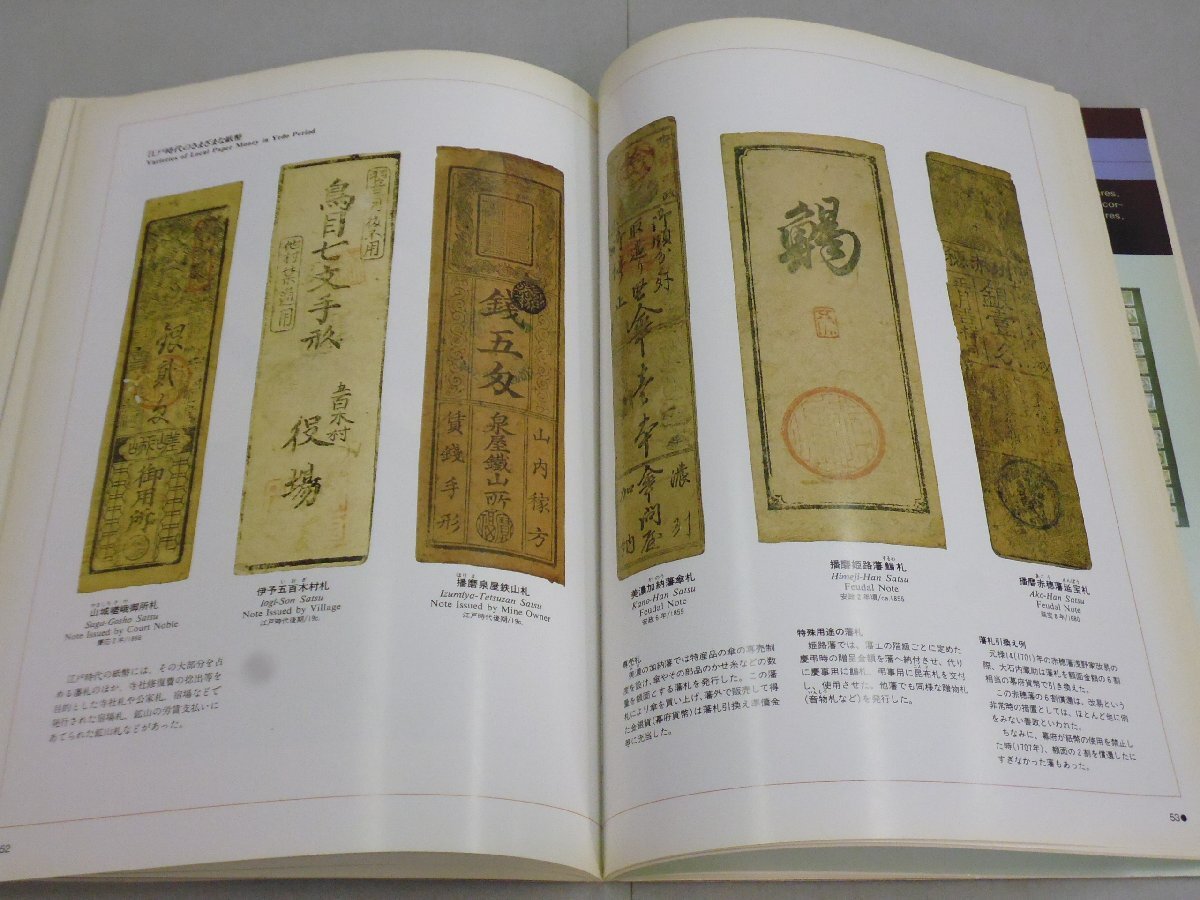 江戸時代のさまざまな紙幣
Varieties of Local Paper Money in Yedo Period
銀貳匁
御用所
鳥目七文手形
五百木村
役場
他村禁通用
銭五匁
泉屋鐵山所
山内稼方
賃銭手形
傘壱本
傘問屋
濃列
加納
銀壹匁
山城嵯峨御所札
Saga-Gosho Satsu
Note Issued by Court Noble
慶応2年/1866
伊予五百木村札
Iogi-Son Satsu
Note Issued by Village
江戸時代後期/19c.
播磨泉屋鉄山札
Izumiya-Tetsuzan Satsu
Note Issued by Mine Owner
江戸時代後期/19c.
美濃加納藩傘札
Kano-Han Satsu
Feudal Note
安政6年/1855
播磨姫路藩鯣札
Himeji-Han Satsu
Feudal Note
安政2年頃/ca.1855
播磨赤穂藩延宝札
Ako-Han Satsu
Feudal Note
延宝8年/1680
江戸時代の紙幣には、その大部分を占
める藩札のほか、寺社修復費の捻出等を
目的とした寺社札や公家札、宿場などで
発行された宿場札、鉱山の労賃支払いに
あてられた鉱山札などがあった。
専売札
美濃の加納藩では特産品の傘の専売制
度を設け、傘やその部品のかせ糸などの数
量を額面とする藩札を発行した。この藩
札により傘を買い上げ、藩外で販売して得
た金銀貨(幕府貨幣)は藩札引換え準備金
等に充当した。
特殊用途の藩札
姫路藩では、藩士の階級ごとに定めた
慶弔時の贈呈金額を藩へ納付させ、代り
に慶事用に鯣札、弔事用に昆布札を交付
し、使用させた。他藩でも同様な贈物札
(音物札など)を発行した。
藩札引換え例
元禄14(1701)年の赤穂藩浅野家改易の
際、大石内蔵助は藩札を額面金額の6割
相当の幕府貨幣で引き換えた。
この赤穂藩の6割償還は、改易という
非常時の措置としては、ほとんど他に例
をみない善政といわれた。
ちなみに、幕府が紙幣の使用を禁止し
た時(1707年)、額面の2割を償還したに
すぎなかった藩もあった。
52
53●
res.
cor-
res,